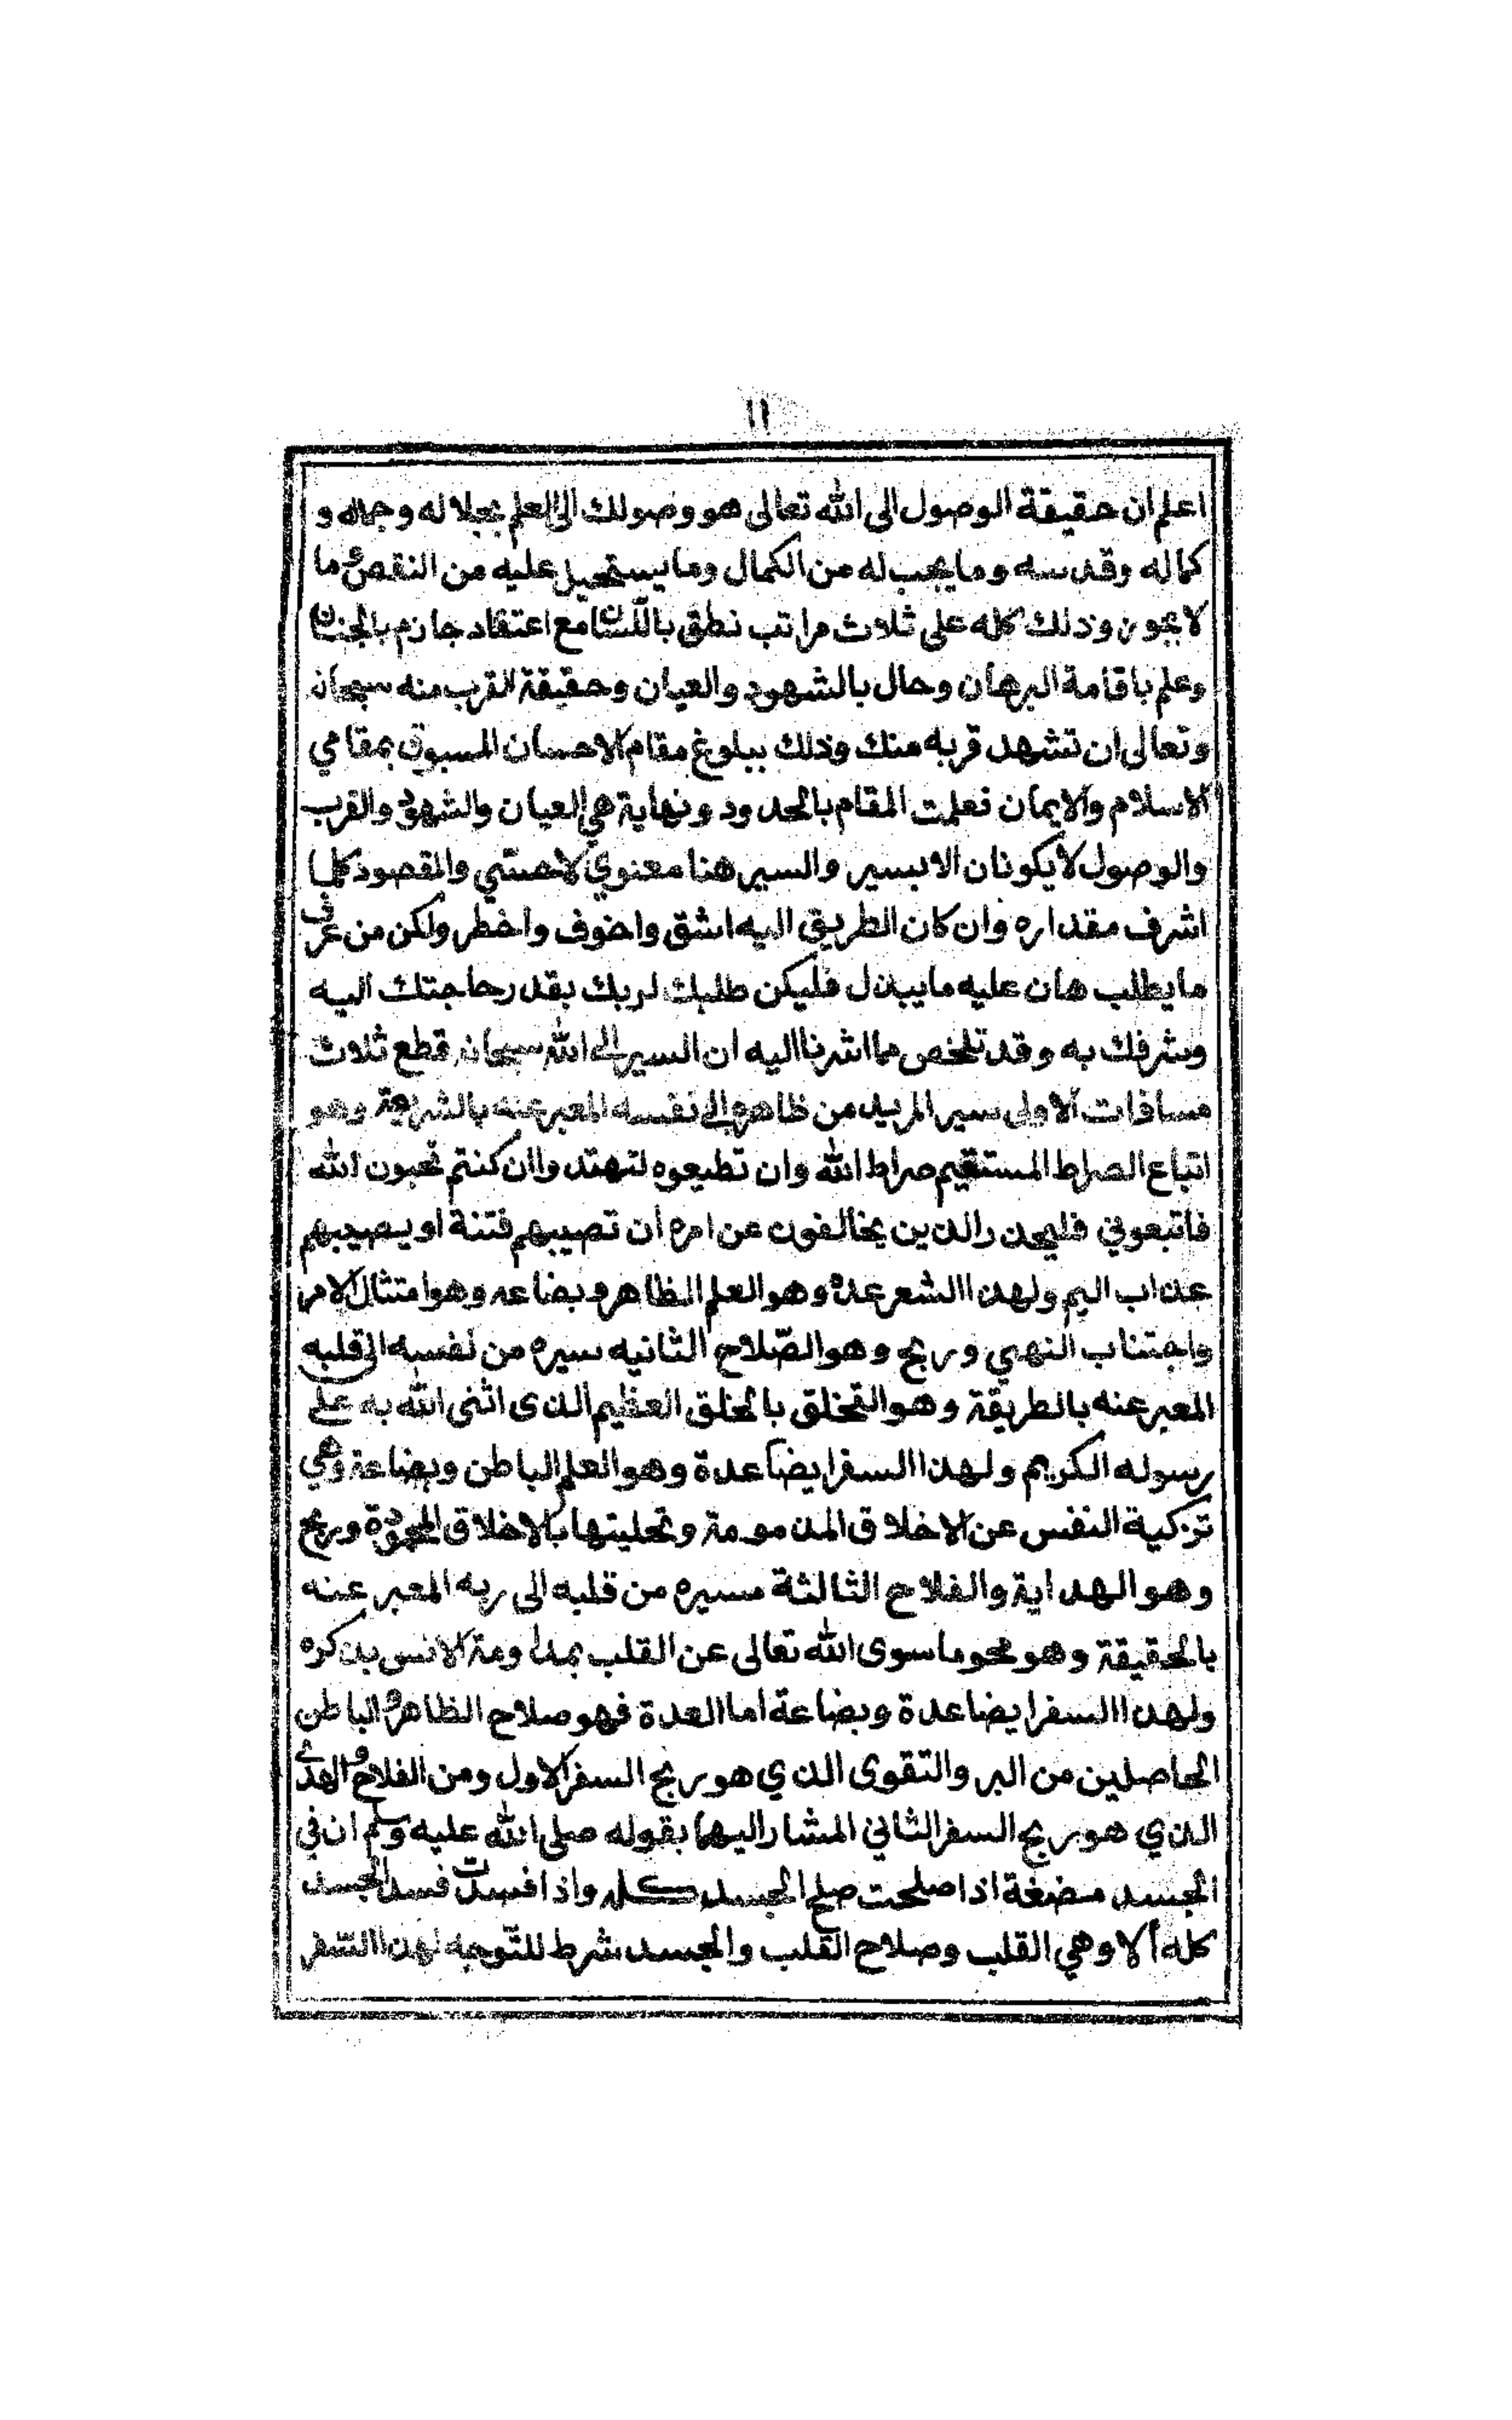 ١١
اعلم ان حقيقة الوصول الى الله تعالى هو وصولك الى العلم بجلاله وجماله و
كماله وقدسه وما يجب له من الكمال وما يستحيل عليه من النقص وما
لا يجوز وذلك كله على ثلاث مراتب نطق باللسان مع اعتقاد جازم بالجنان
وعلم باقامة البرهان وحال بالشهود والعيان وحقيقة القرب منه سبحانه
وتعالى ان تشهد قربه منك وذلك ببلوغ مقام الاحسان المسبوق بمقامي
الاسلام والايمان فعلمت المقام بالحدود ونهاية هي العيان والشهود والقرب
والوصول لا يكونان الا بسير والسير هنا معنوي لا حسي والمقصود كلما
اشرف مقداره وان كان الطريق اليه اشق واخوف واخطر ولكن من عرف
ما يطلب هان عليه ما يبذل فليكن طلبك لربك بقدر حاجتك اليه
وشرفك به وقد تلخص مما اشرنا اليه ان السير الى الله سبحانه قطع ثلاث
مسافات الاولى سير المريد من ظاهره الى نفسه المعبر عنه بالشريعة وهو
اتباع الصراط المستقيم صراط الله وان تطيعوه لتهتدوا ان كنتم تحبون الله
فاتبعوني فليحذر الذين يخالفون عن امره أن تصيبهم فتنة او يصيبهم
عذاب اليم ولهذا الشعر عدة وهو العلم الظاهر وبضاعه وهو امتثال الامر
واجتناب النهي وربح وهو الصّلاح الثانيه سيره من نفسه الى قلبه
المعبر عنه بالطريقة وهو التخلق بالخلق العظيم الذى اثنى الله به على
رسوله الكريم ولهذا السفر ايضا عدة وهو العلم الباطن وبضاعة وهي
تزكية النفس عن الاخلاق المذمومة وتحليتها بالاخلاق المحمودة وربح
وهو الهداية والفلاح الثالثة مسيره من قلبه الى ربه المعبر عنه
بالحقيقة وهو محو ما سوى الله تعالى عن القلب بمداومة الانس بذكره
ولهذا السفر ايضا عدة وبضاعة اما العدة فهو صلاح الظاهر والباطن
الحاصلين من البر والتقوى الذي هو ربح السفر الاول ومن الفلاح والهدى
الذي هو ربح السفر الثاني المشار اليهما بقوله صلى الله عليه وسلم ان في
الجسد مضغة اذا صلحت صلح الجسد كله واذا فسدت فسد الجسد
كله ألا وهي القلب وصلاح القلب والجسد شرط للتّوجه لهذا السّفر